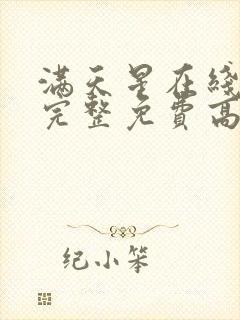 满天星在线
完整免费高
纪小笨